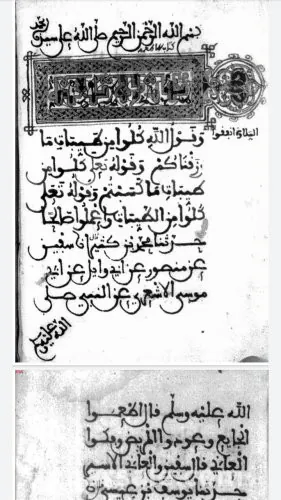 بسم الله الرحمن الرحيم صلى الله على سيدنا محمد
التلاوة انفقوا
وقول الله كلوا من طيبات ما
رزقناكم وقوله تعلى كلوا من
طيبات ما كسبتم وقوله تعلى
كلوا من الطيبات واعملوا صلحا
حدثنا محمد بن كثير انا سفين
عن منصور عن ابي وايل عن ابي
موسى الاشعري عن النبي صلى
الله عليه وسلم
الله عليه وسلم قال اطعموا
الجايع وعودوا المريض وفكوا
العاني قال سفين والعاني الاسير
حدثنا يوسف بن عيسى نا